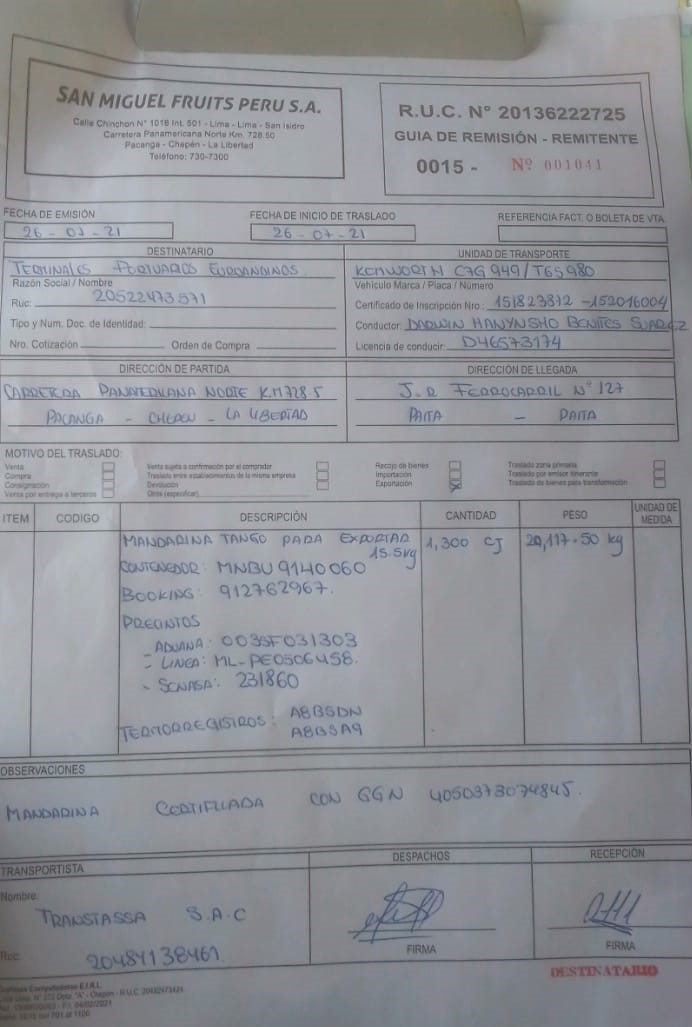 SAN MIGUEL FRUITS PERU S.A.
Calle Chinchon N° 1018 Int. 501 - Lima - Lima - San Isidro
Carretera Panamericana Norte Km. 728.50
Pacanga - Chepén - La Libertad
Teléfono: 730-7300
R.U.C. N° 20136222725
GUIA DE REMISIÓN - REMITENTE
0015 - Nº 001041
FECHA DE EMISIÓN
26 - 07 - 21
FECHA DE INICIO DE TRASLADO
26 - 07 - 21
REFERENCIA FACT. O BOLETA DE VTA.
DESTINATARIO
TERMINALES PORTUARIOS EUROANDINOS
Razón Social / Nombre
Ruc: 20522473571
Tipo y Num. Doc. de Identidad:
Nro. Cotización Orden de Compra
UNIDAD DE TRANSPORTE
KENWORTH C7G 949 / T6S 980
Vehículo Marca / Placa / Número
Certificado de Inscripción Nro.: 151823812 - 152016004
Conductor: DARWIN HANYNSHO BENITES SUAREZ
Licencia de conducir: D46573174
DIRECCIÓN DE PARTIDA
CARRETERA PANAMERICANA NORTE KM 728.5
PACANGA - CHEPEN - LA LIBERTAD
DIRECCIÓN DE LLEGADA
J.R FERROCARRIL N° 127
PAITA - PAITA
MOTIVO DEL TRASLADO:
Venta
Compra
Consignación
Venta por entrega a terceros
Venta sujeta a confirmación por el comprador
Traslado entre establecimientos de la misma empresa
Devolución
Otros (especificar)
Recojo de bienes
Importación
Exportación X
Traslado zona primaria
Traslado por emisor itinerante
Traslado de bienes para transformación
ITEM CODIGO DESCRIPCIÓN CANTIDAD PESO UNIDAD DE MEDIDA
MANDARINA TANGO PARA EXPORTAR 1,300 CJ 20,117.50 kg
15.5kg
CONTENEDOR: MNBU 9140060
BOOKING: 912762967.
PRECINTOS
- ADUANA: 003SF031303
- LINEA: ML-PE0506458.
- SENASA: 231860
TERMORREGISTROS: A8BSDN
A8BSA9
OBSERVACIONES
MANDARINA CERTIFICADA CON GGN 4050373074845.
TRANSPORTISTA
Nombre:
TRANSTASSA S.A.C
Ruc: 20484138461
DESPACHOS
FIRMA
RECEPCIÓN
FIRMA
DESTINATARIO